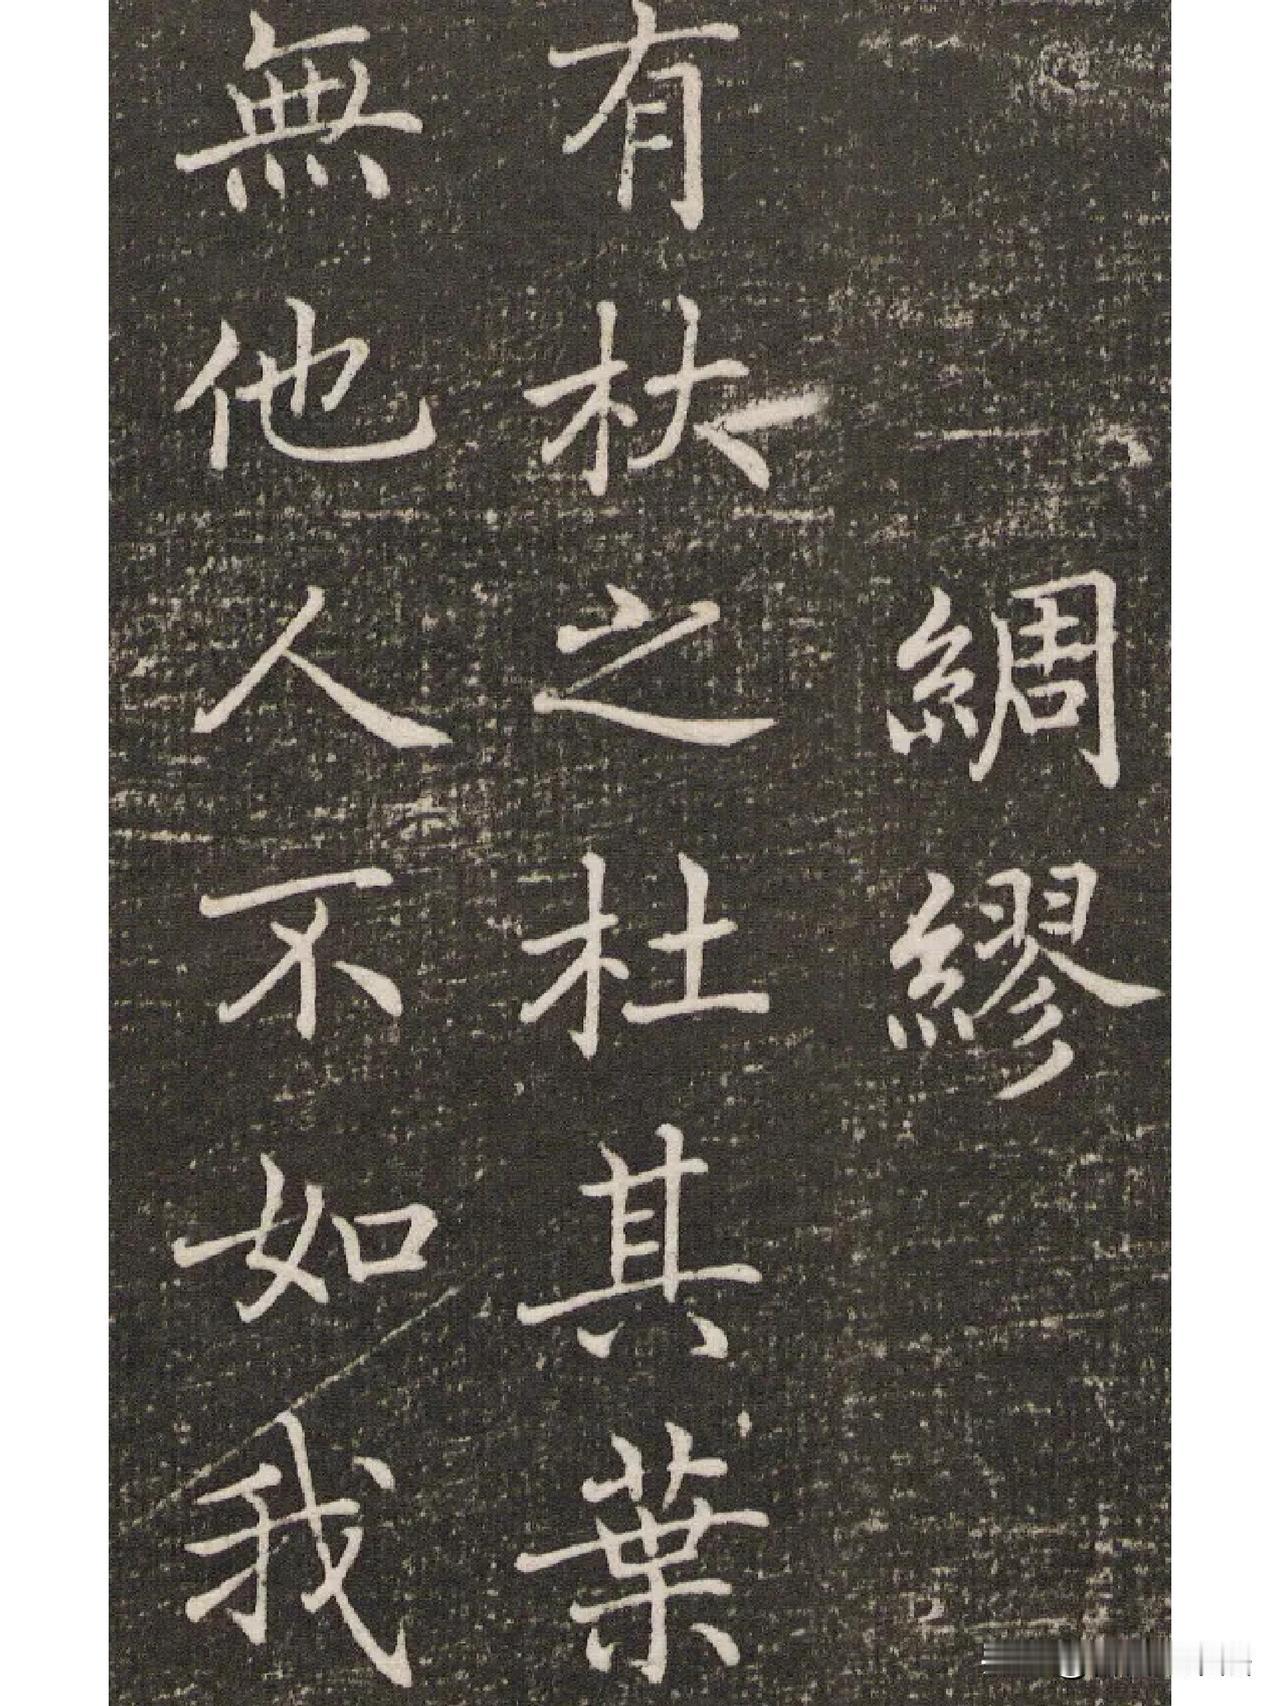 綢繆
有杕之杜其葉
無他人不如我